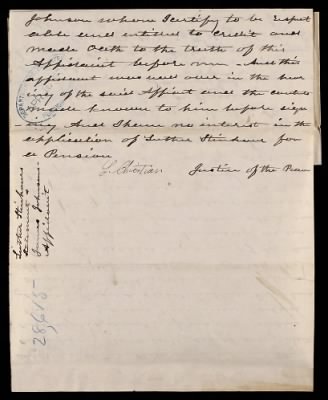 Johnson whom I certify to be respect
able and entitled to credit and
made oath to the truth of this
Appidavit before me - And this
appidavit was read over in the hear
ing of the said Affiant and the contents
made known to him before sign
ing And I have no interest in the
application of Luther Stinhour for
a Pension
L Christian Justice of the Peace
Luther Stinhour
James Johnson
Appidavit
28,615